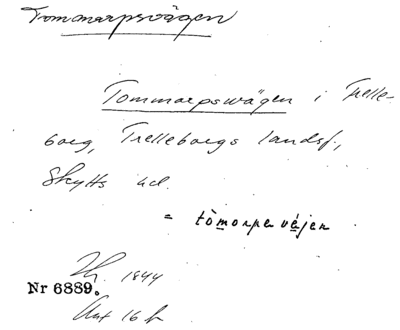 Tommarpsvägen
Tommarpsvägen i Trelle-
borg, Trelleborgs landsf.,
Skytts hd.
= tòmorpsvéjen
1844
Nr 6889.
16